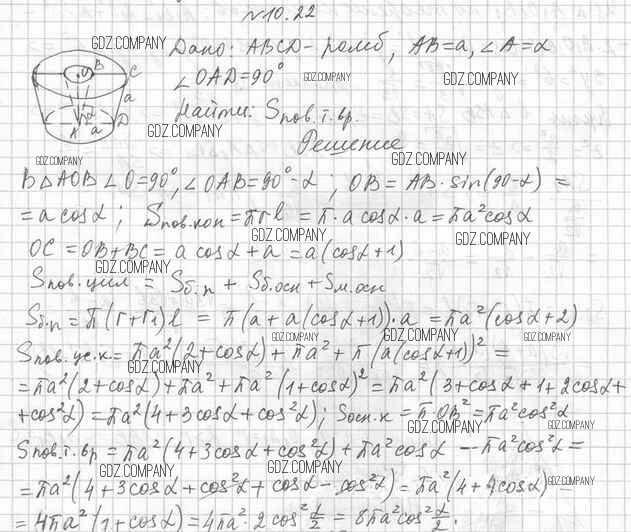 №10.22
GDZ.COMPANY Дано: ABCD - ромб, AB=a, ∠A=α
∠OAD=90° GDZ.COMPANY GDZ.COMPANY
B C O a α A a D
GDZ.COMPANY Найти: Sпов.т.вр.
Решение
GDZ.COMPANY GDZ.COMPANY
В △AOB ∠O=90°, ∠OAB=90°-α; OB=AB·sin(90-α) =
= a cosα; Sпов.кон = πrl = π·a cosα·a = πa²cosα
GDZ.COMPANY GDZ.COMPANY
OC = OB+BC = a cosα + a = a(cosα+1)
GDZ.COMPANY
Sпов.цил = Sб.п + Sб.осн + Sм.осн
Sб.п = π(r+r₁)l = π(a+a(cosα+1))·a = πa²(cosα+2)
GDZ.COMPANY GDZ.COMPANY GDZ.COMPANY
Sпов.ус.к = πa²(2+cosα) + πa² + π(a(cosα+1))² =
GDZ.COMPANY
= πa²(2+cosα) + πa² + πa²(1+cosα)² = πa²(3+cosα+1+2cosα+
+cos²α) = πa²(4+3cosα+cos²α); Sосн.к = π·OB² = πa²cos²α
GDZ.COMPANY GDZ.COMPANY
Sпов.т.вр = πa²(4+3cosα+cos²α) + πa²cosα - πa²cos²α =
GDZ.COMPANY GDZ.COMPANY
= πa²(4+3cosα+cos²α+cosα-cos²α) = πa²(4+4cosα) =
GDZ.COMPANY GDZ.COMPANY
= 4πa²(1+cosα) = 4πa²·2cos²α/2 = 8πa²cos²α/2.